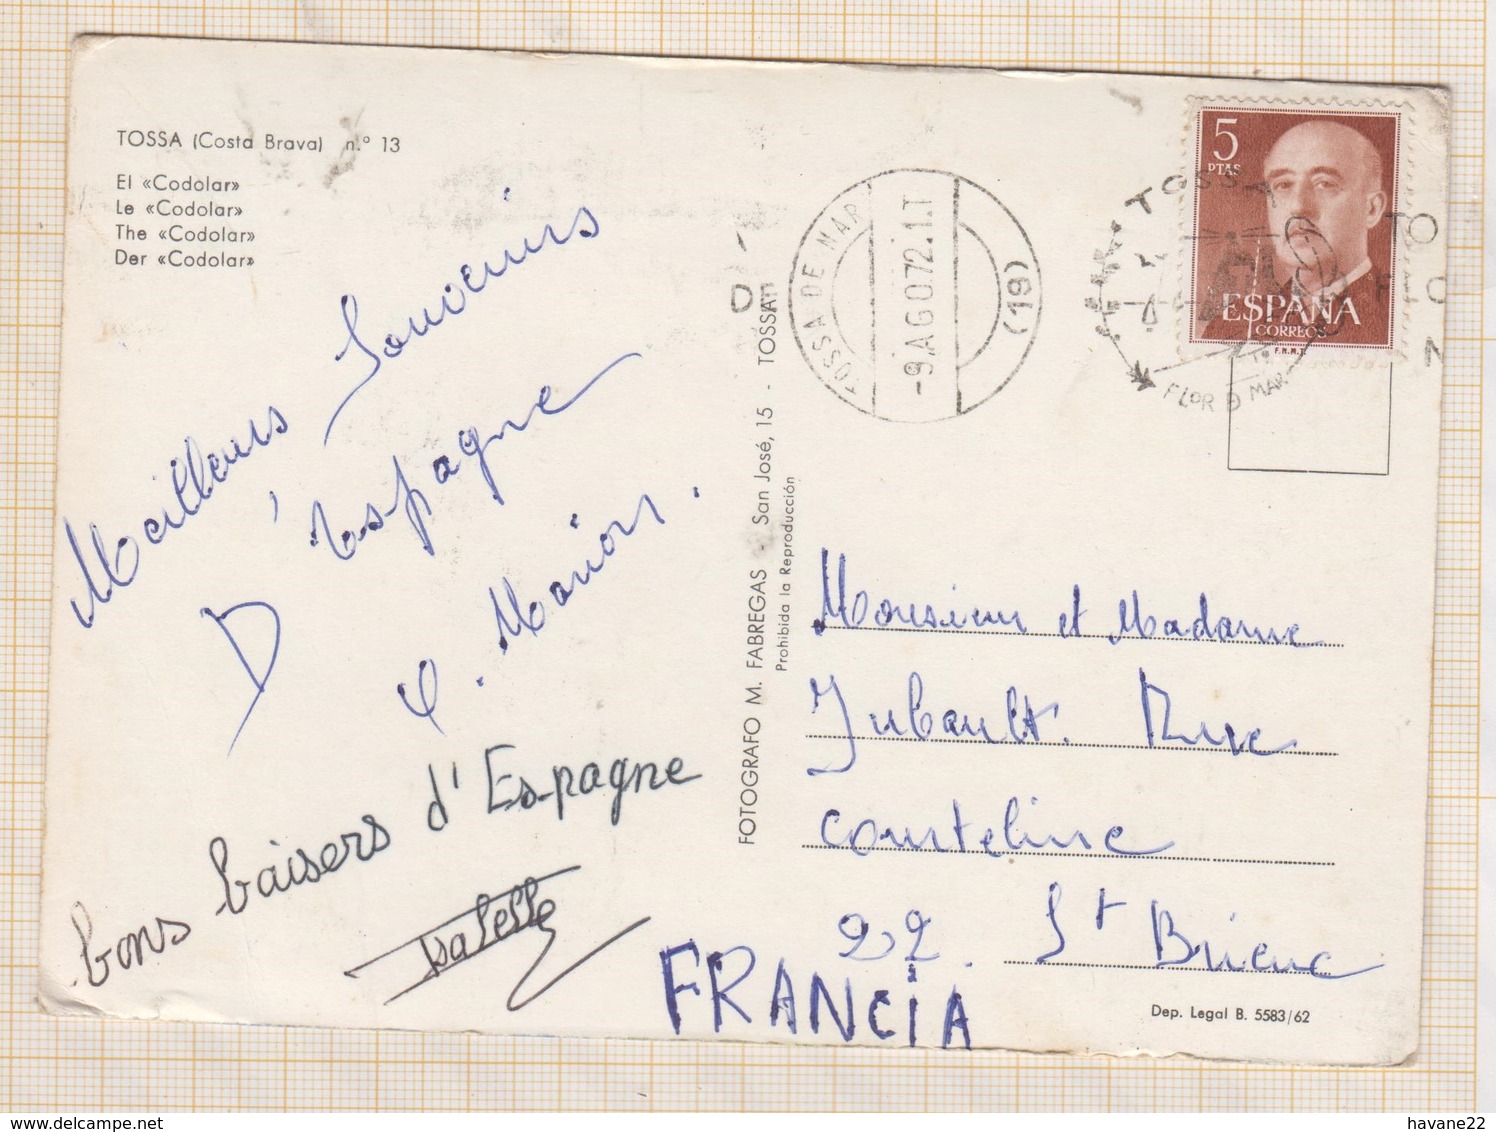 TOSSA (Costa Brava) n.º 13
El «Codolar»
Le «Codolar»
The «Codolar»
Der «Codolar»
Meilleurs Souvenirs
D'Espagne
Marion.
bons baisers d'Espagne
Isabelle
FOTOGRAFO M. FABREGAS - San José, 15 - TOSSA
Prohibida la Reproducción
TOSSA DE MAR
-9.AGO.72.1.T
(19)
TOSSA
FLOR D MAR
TO
FLO
5
PTAS
ESPAÑA
CORREOS
F.N.M.T.
Monsieur et Madame
Jubault. Rue
Courteline
22. St Brieuc
FRANCIA
Dep. Legal B. 5583/62
delcampe.net
havane22